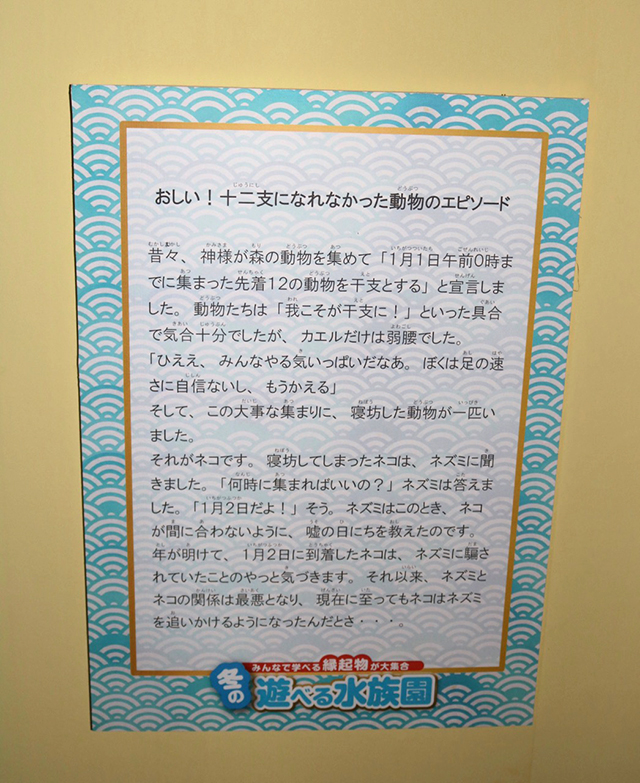 おしい！十二支になれなかった動物のエピソード
昔々、神様が森の動物を集めて「1月1日午前0時ま
でに集まった先着12の動物を干支とする」と宣言しま
した。動物たちは「我こそが干支に！」といった具合
で気合十分でしたが、カエルだけは弱腰でした。
「ひええ、みんなやる気いっぱいだなあ。ぼくは足の速
さに自信ないし、もうかえる」
そして、この大事な集まりに、寝坊した動物が一匹い
ました。
それがネコです。寝坊してしまったネコは、ネズミに聞
きました。「何時に集まればいいの？」ネズミは答えま
した。「1月2日だよ！」そう。ネズミはこのとき、ネコ
が間に合わないように、嘘の日にちを教えたのです。
年が明けて、1月2日に到着したネコは、ネズミに騙さ
れていたことのやっと気づきます。それ以来、ネズミと
ネコの関係は最悪となり、現在に至ってもネコはネズミ
を追いかけるようになったんだとさ・・・。
みんなで学べる縁起物が大集合
冬の遊べる水族園